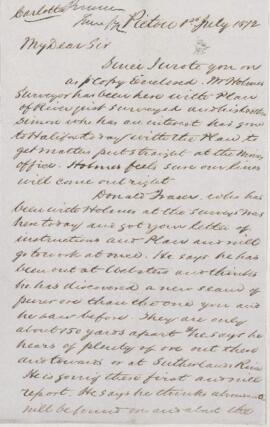 Pictou 1st July 1872
My Dear Sir
Since I wrote you on
as p Copy Enclosed. Mr Holmes
Surveyor has been here with Plan
of River just surveyed and his brother
Simon who has an interest has gone
to Halifax to day with the Plan to
get matters put straight at the Mines
office. Holmes feels sure our lines
will come out right
Donald Fraser who has
been with Holmes at the surveys was
here to day and got your letter of
instructions and Plan and will
go to work at once. He says he has
been out at Websters and thinks
he has discovered a new seam of
pure ore than the one you and
he saw before. They are only
about 150 yards apart & he says he
hears of plenty of ore out there
and towards or at Sutherlands River
He is going there first and will
report. He says he thinks abundance
will be found on and about the